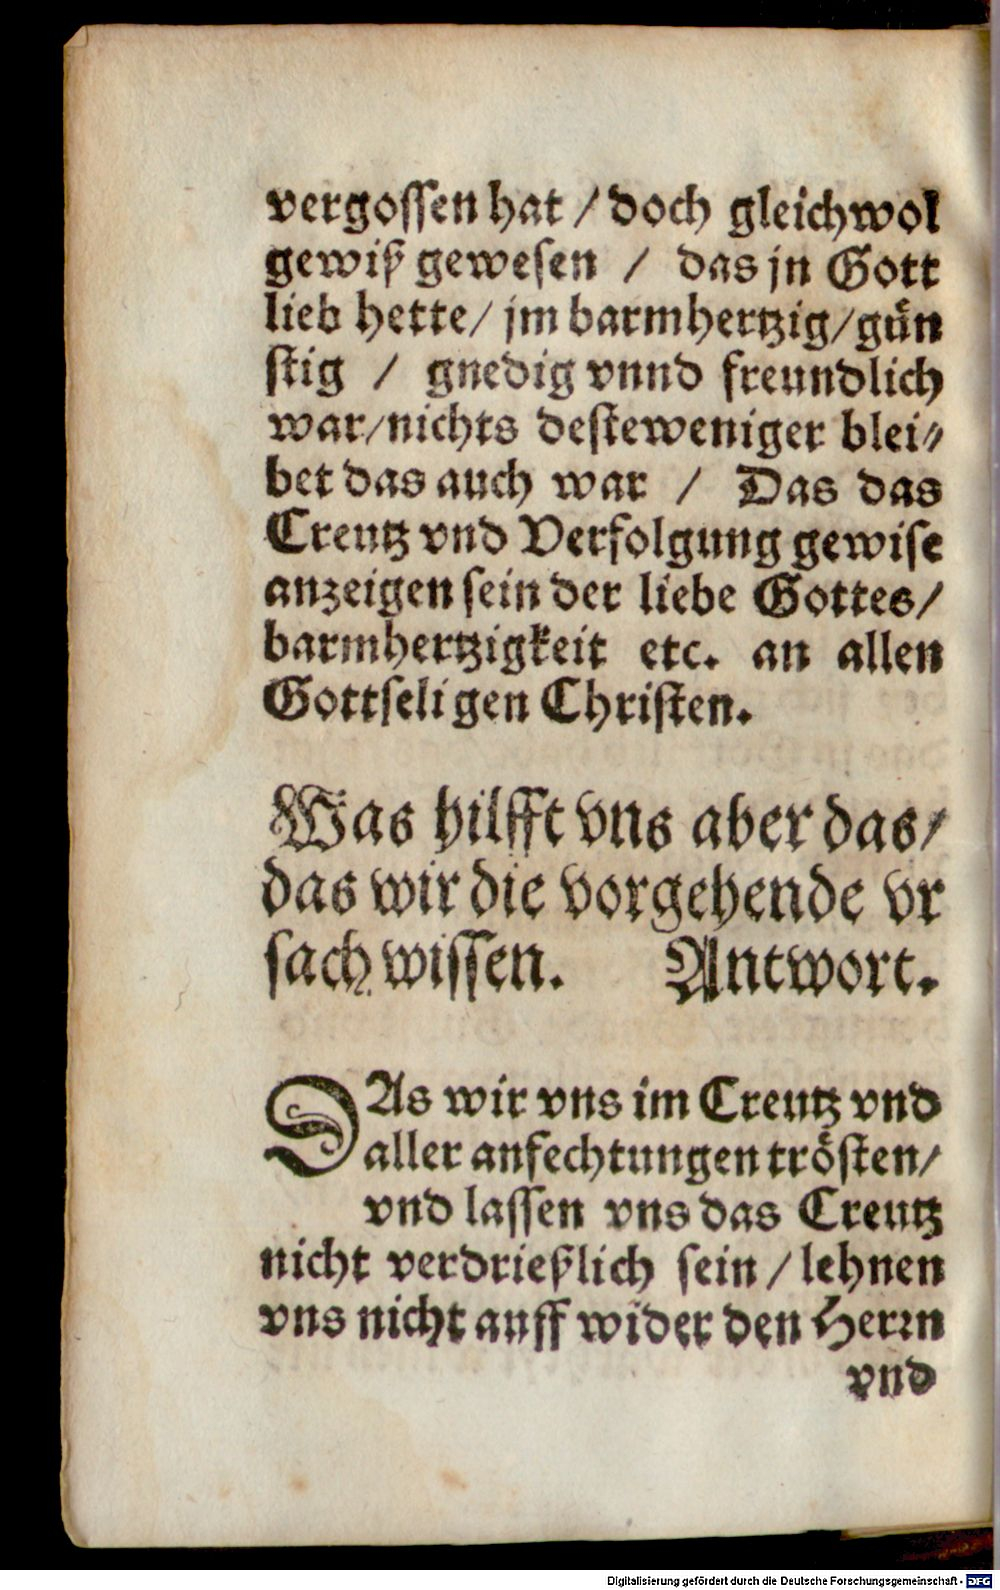 vergossen hat / doch gleichwol
gewiß gewesen / das jn Gott
lieb hette/ jm barmhertzig/gün
stig / gnedig vnnd freundlich
war/nichts desteweniger blei⸗
bet das auch war / Das das
Creutz vnd Verfolgung gewise
anzeigen sein der liebe Gottes/
barmhertzigkeit etc. an allen
Gottseligen Christen.
Was hilfft vns aber das/
das wir die vorgehende vr
sach wissen. Antwort.
DAs wir vns im Creutz vnd
aller anfechtungen trösten/
vnd lassen vns das Creutz
nicht verdrießlich sein / lehnen
vns nicht auff wider den Herrn
vnd
Digitalisierung gefördert durch die Deutsche Forschungsgemeinschaft - DFG